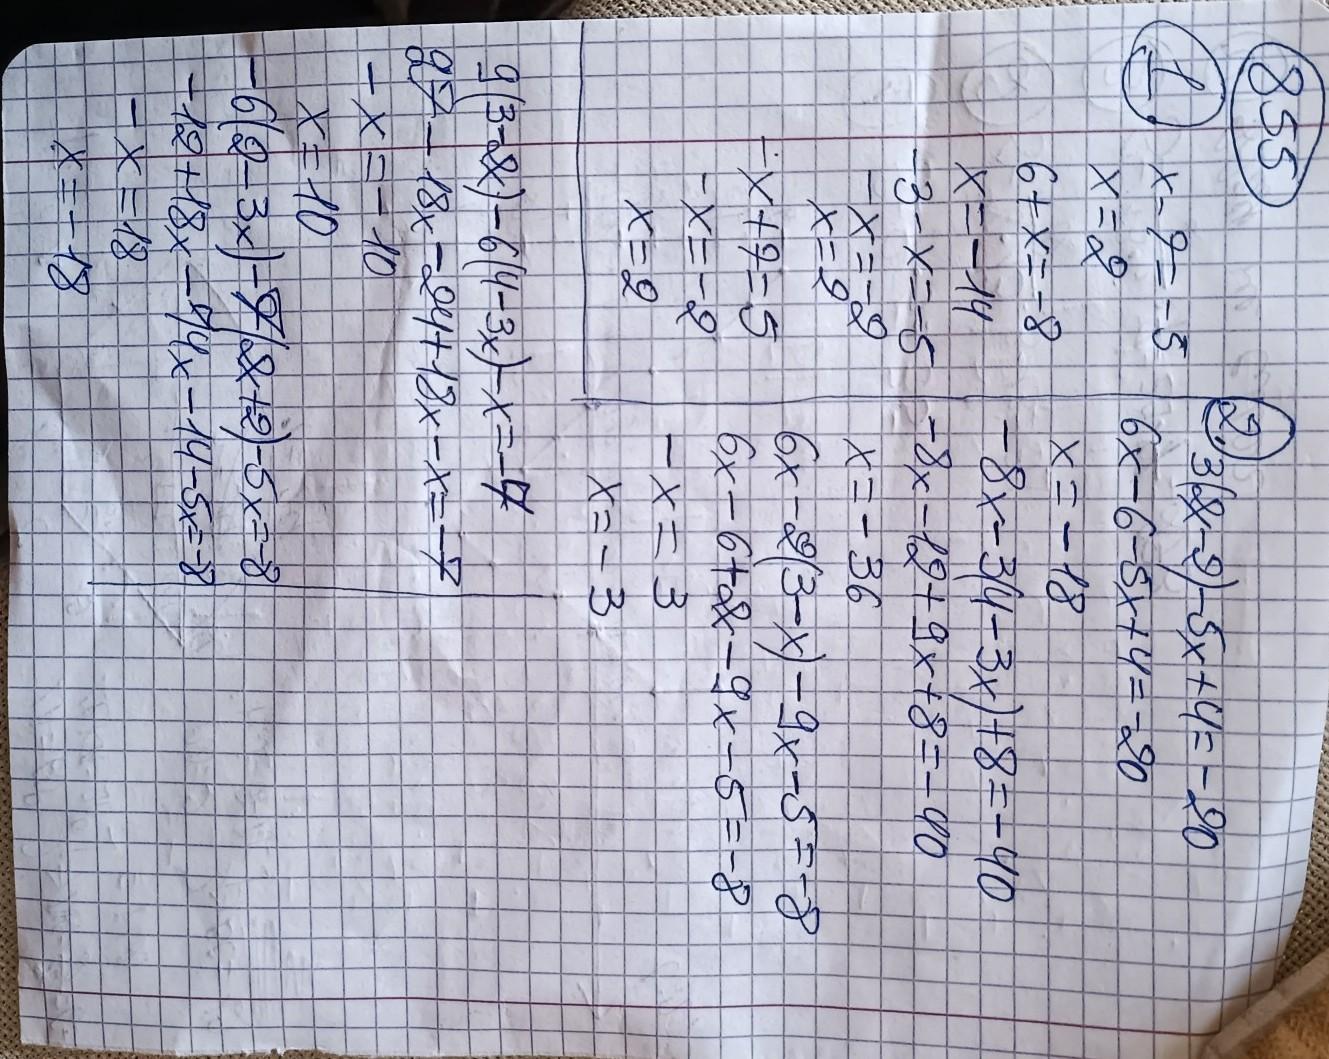 855
1.
x-7=-5
x=2
6+x=-8
x=-14
-3-x=-5
-x=-2
x=2
-x+7=5
-x=-2
x=2
2. 3(2x-2)-5x+4=-20
6x-6-5x+4=-20
x=-18
-8x-3(4-3x)+8=-40
-8x-12+9x+8=-40
x=-36
6x-2(3-x)-9x-5=-8
6x-6+2x-9x-5=-8
-x=3
x=-3
9(3-2x)-6(4-3x)-x=-7
27-18x-24+18x-x=-7
-x=-10
x=10
-6(2-3x)-7(2x+2)-5x=-8
-12+18x-14x-14-5x=-8
-x=18
x=-18